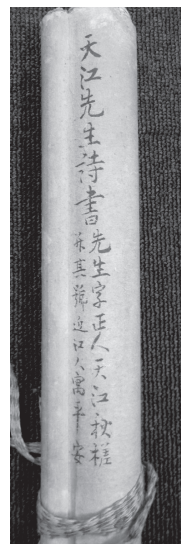 天江先生詩書
先生字正人天江秋槎
并其號近江人寓平安